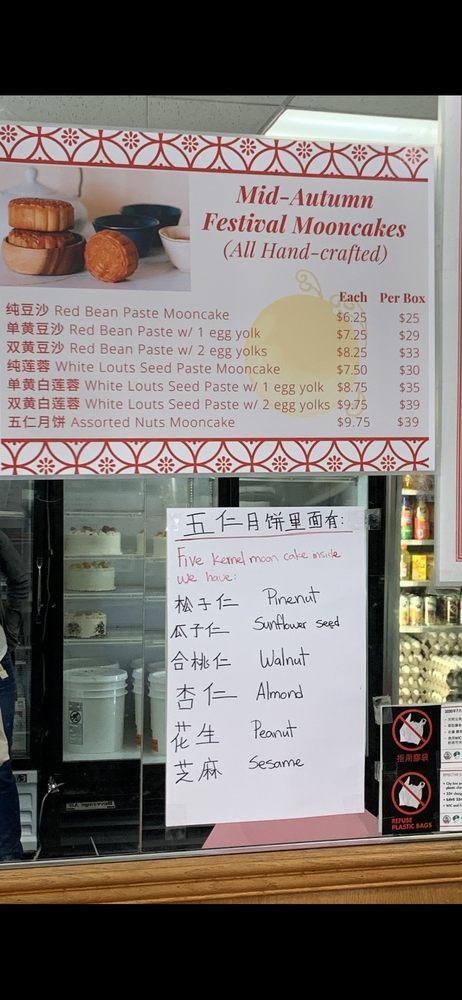 Mid-Autumn
Festival Mooncakes
(All Hand-crafted)
Each Per Box
纯豆沙 Red Bean Paste Mooncake $6.25 $25
单黄豆沙 Red Bean Paste w/ 1 egg yolk $7.25 $29
双黄豆沙 Red Bean Paste w/ 2 egg yolks $8.25 $33
纯莲蓉 White Louts Seed Paste Mooncake $7.50 $30
单黄白莲蓉 White Louts Seed Paste w/ 1 egg yolk $8.75 $35
双黄白莲蓉 White Louts Seed Paste w/ 2 egg yolks $9.75 $39
五仁月饼 Assorted Nuts Mooncake $9.75 $39
五仁月饼里面有:
Five kernel moon cake inside
we have:
松子仁 Pinenut
瓜子仁 Sunflower seed
合桃仁 Walnut
杏仁 Almond
花生 Peanut
芝麻 Sesame
拒用膠袋
REFUSE
PLASTIC BAGS